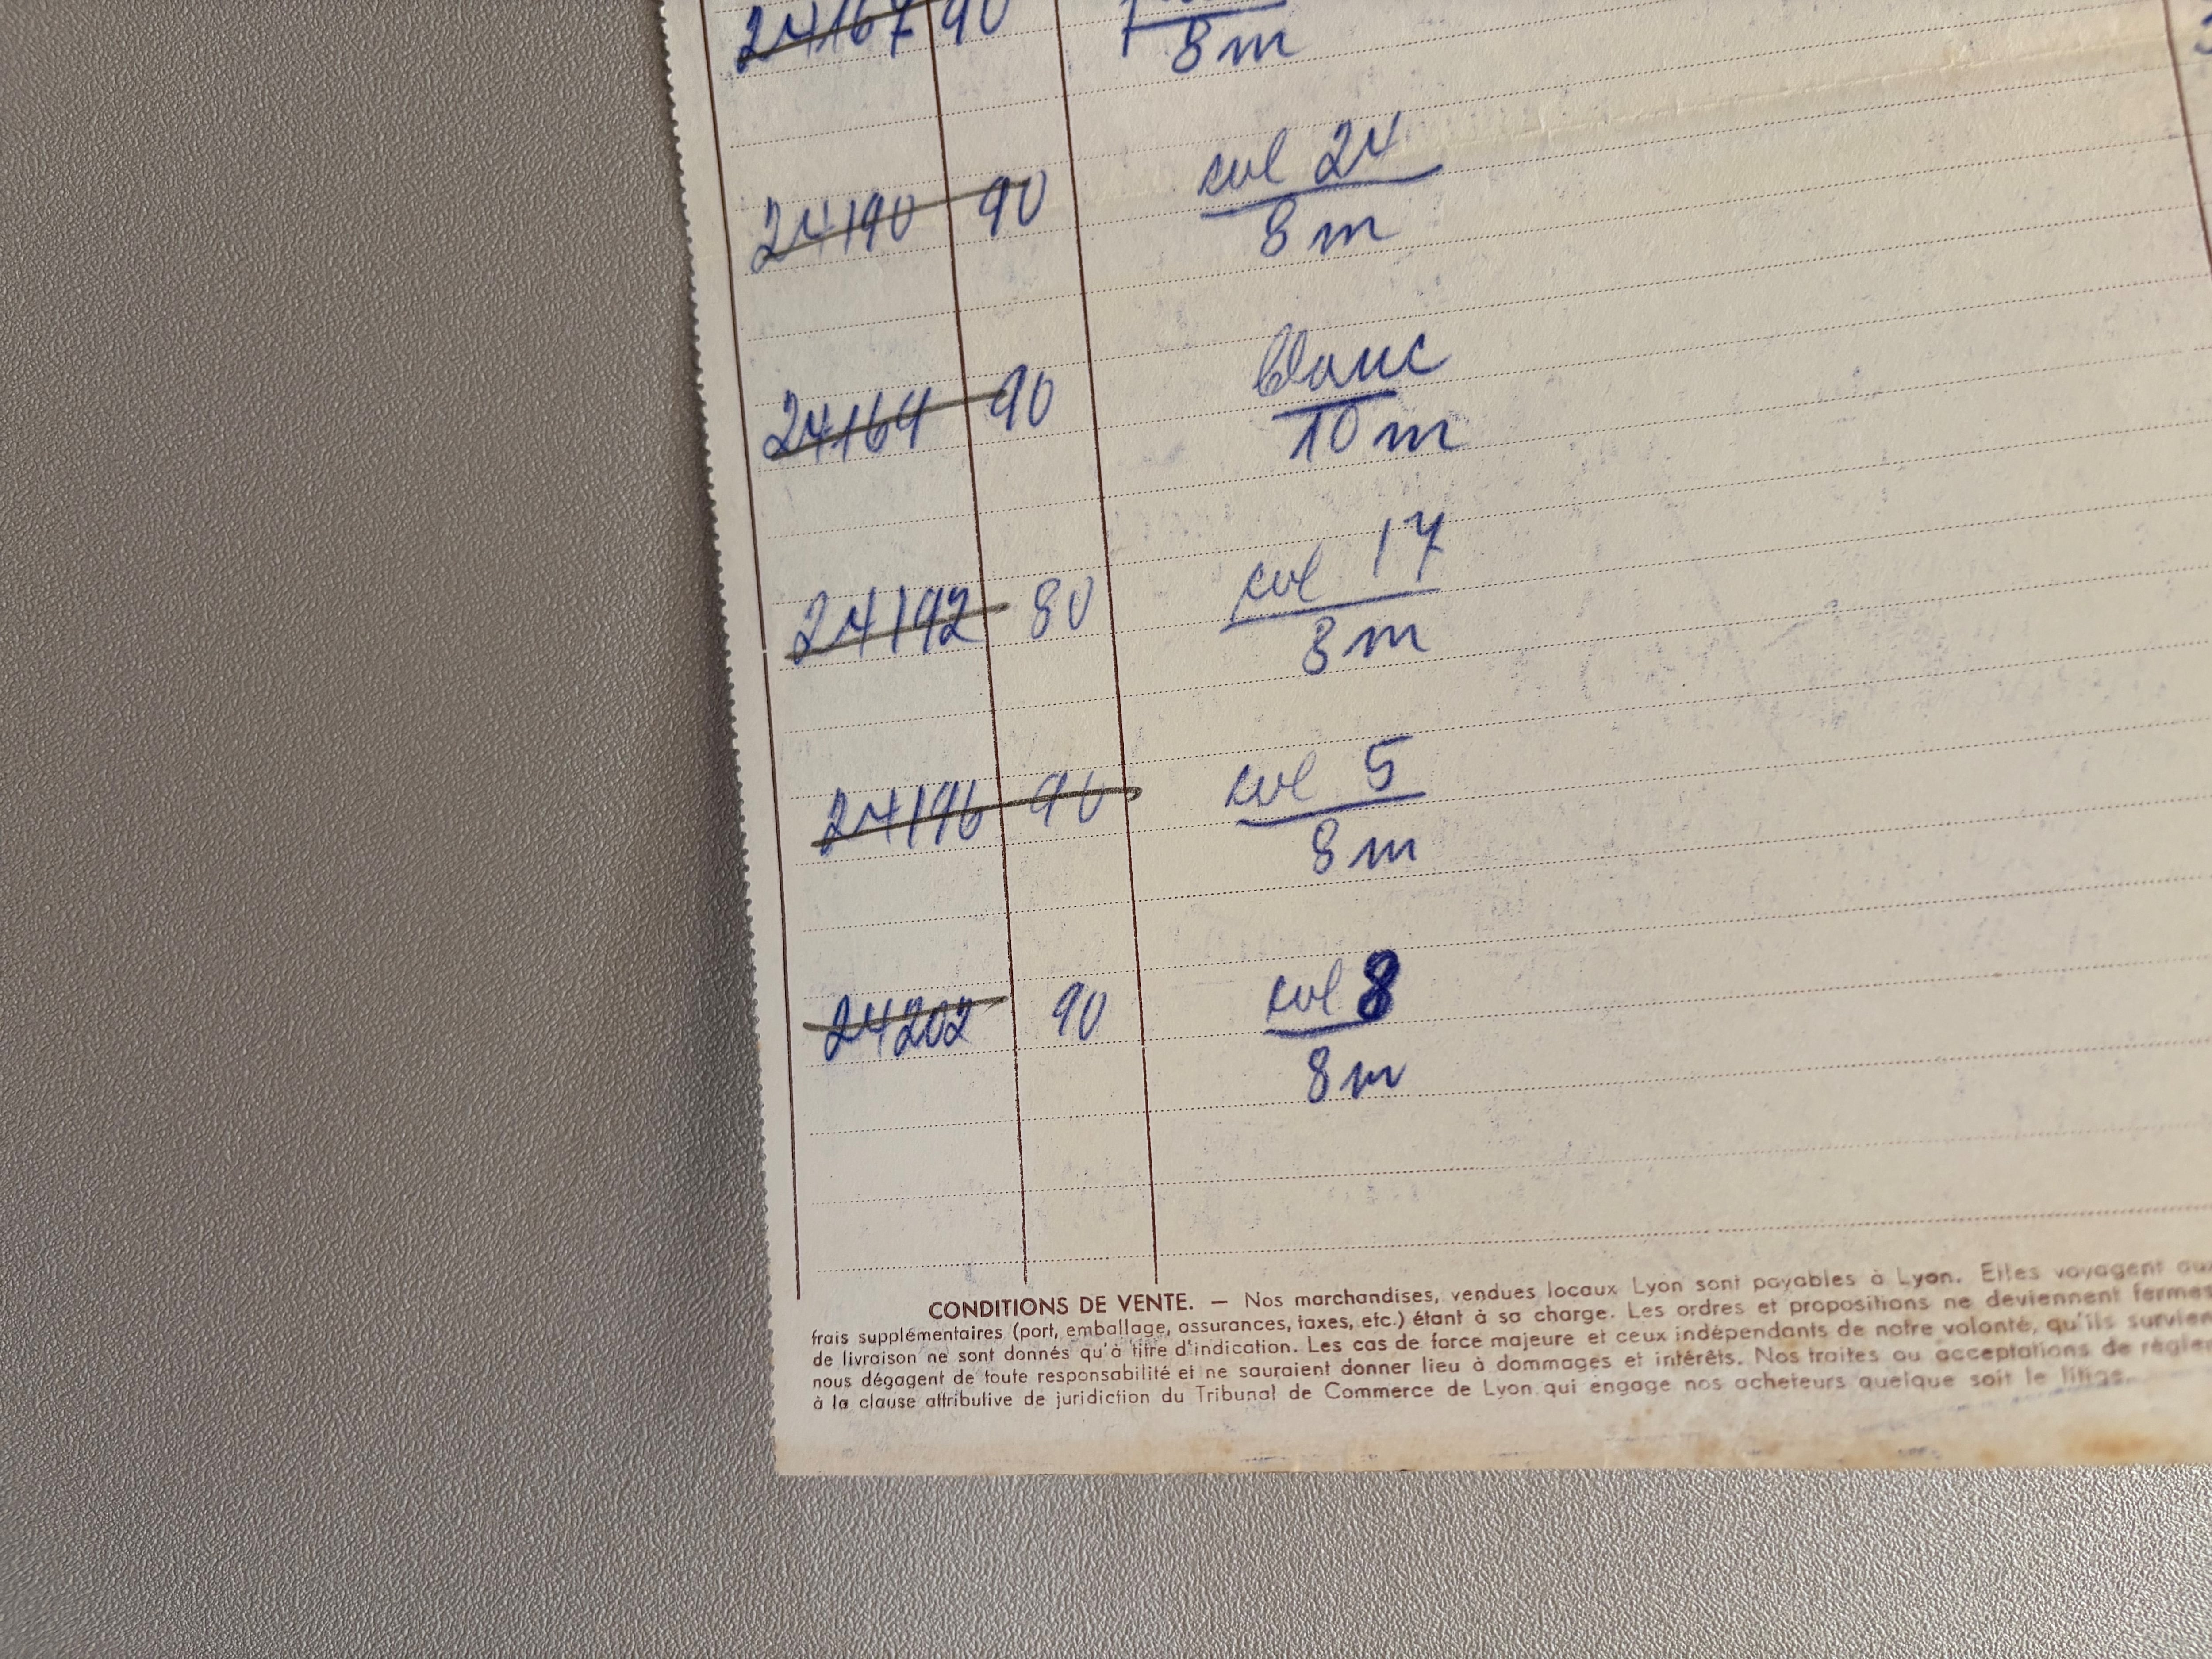 24167 90
8m
24190 90 col 24
8m
24164 90 blanc
10m
24192 80 col 17
8m
24196 90 col 5
8m
24202 90 col 8
8m
CONDITIONS DE VENTE. — Nos marchandises, vendues locaux Lyon sont payables à Lyon. Elles voyagent aux
frais supplémentaires (port, emballage, assurances, taxes, etc.) étant à sa charge. Les ordres et propositions ne deviennent fermes
de livraison ne sont donnés qu'à titre d'indication. Les cas de force majeure et ceux indépendants de notre volonté, qu'ils survien
nous dégagent de toute responsabilité et ne sauraient donner lieu à dommages et intérêts. Nos traites ou acceptations de règlem
à la clause attributive de juridiction du Tribunal de Commerce de Lyon qui engage nos acheteurs quelque soit le litige.